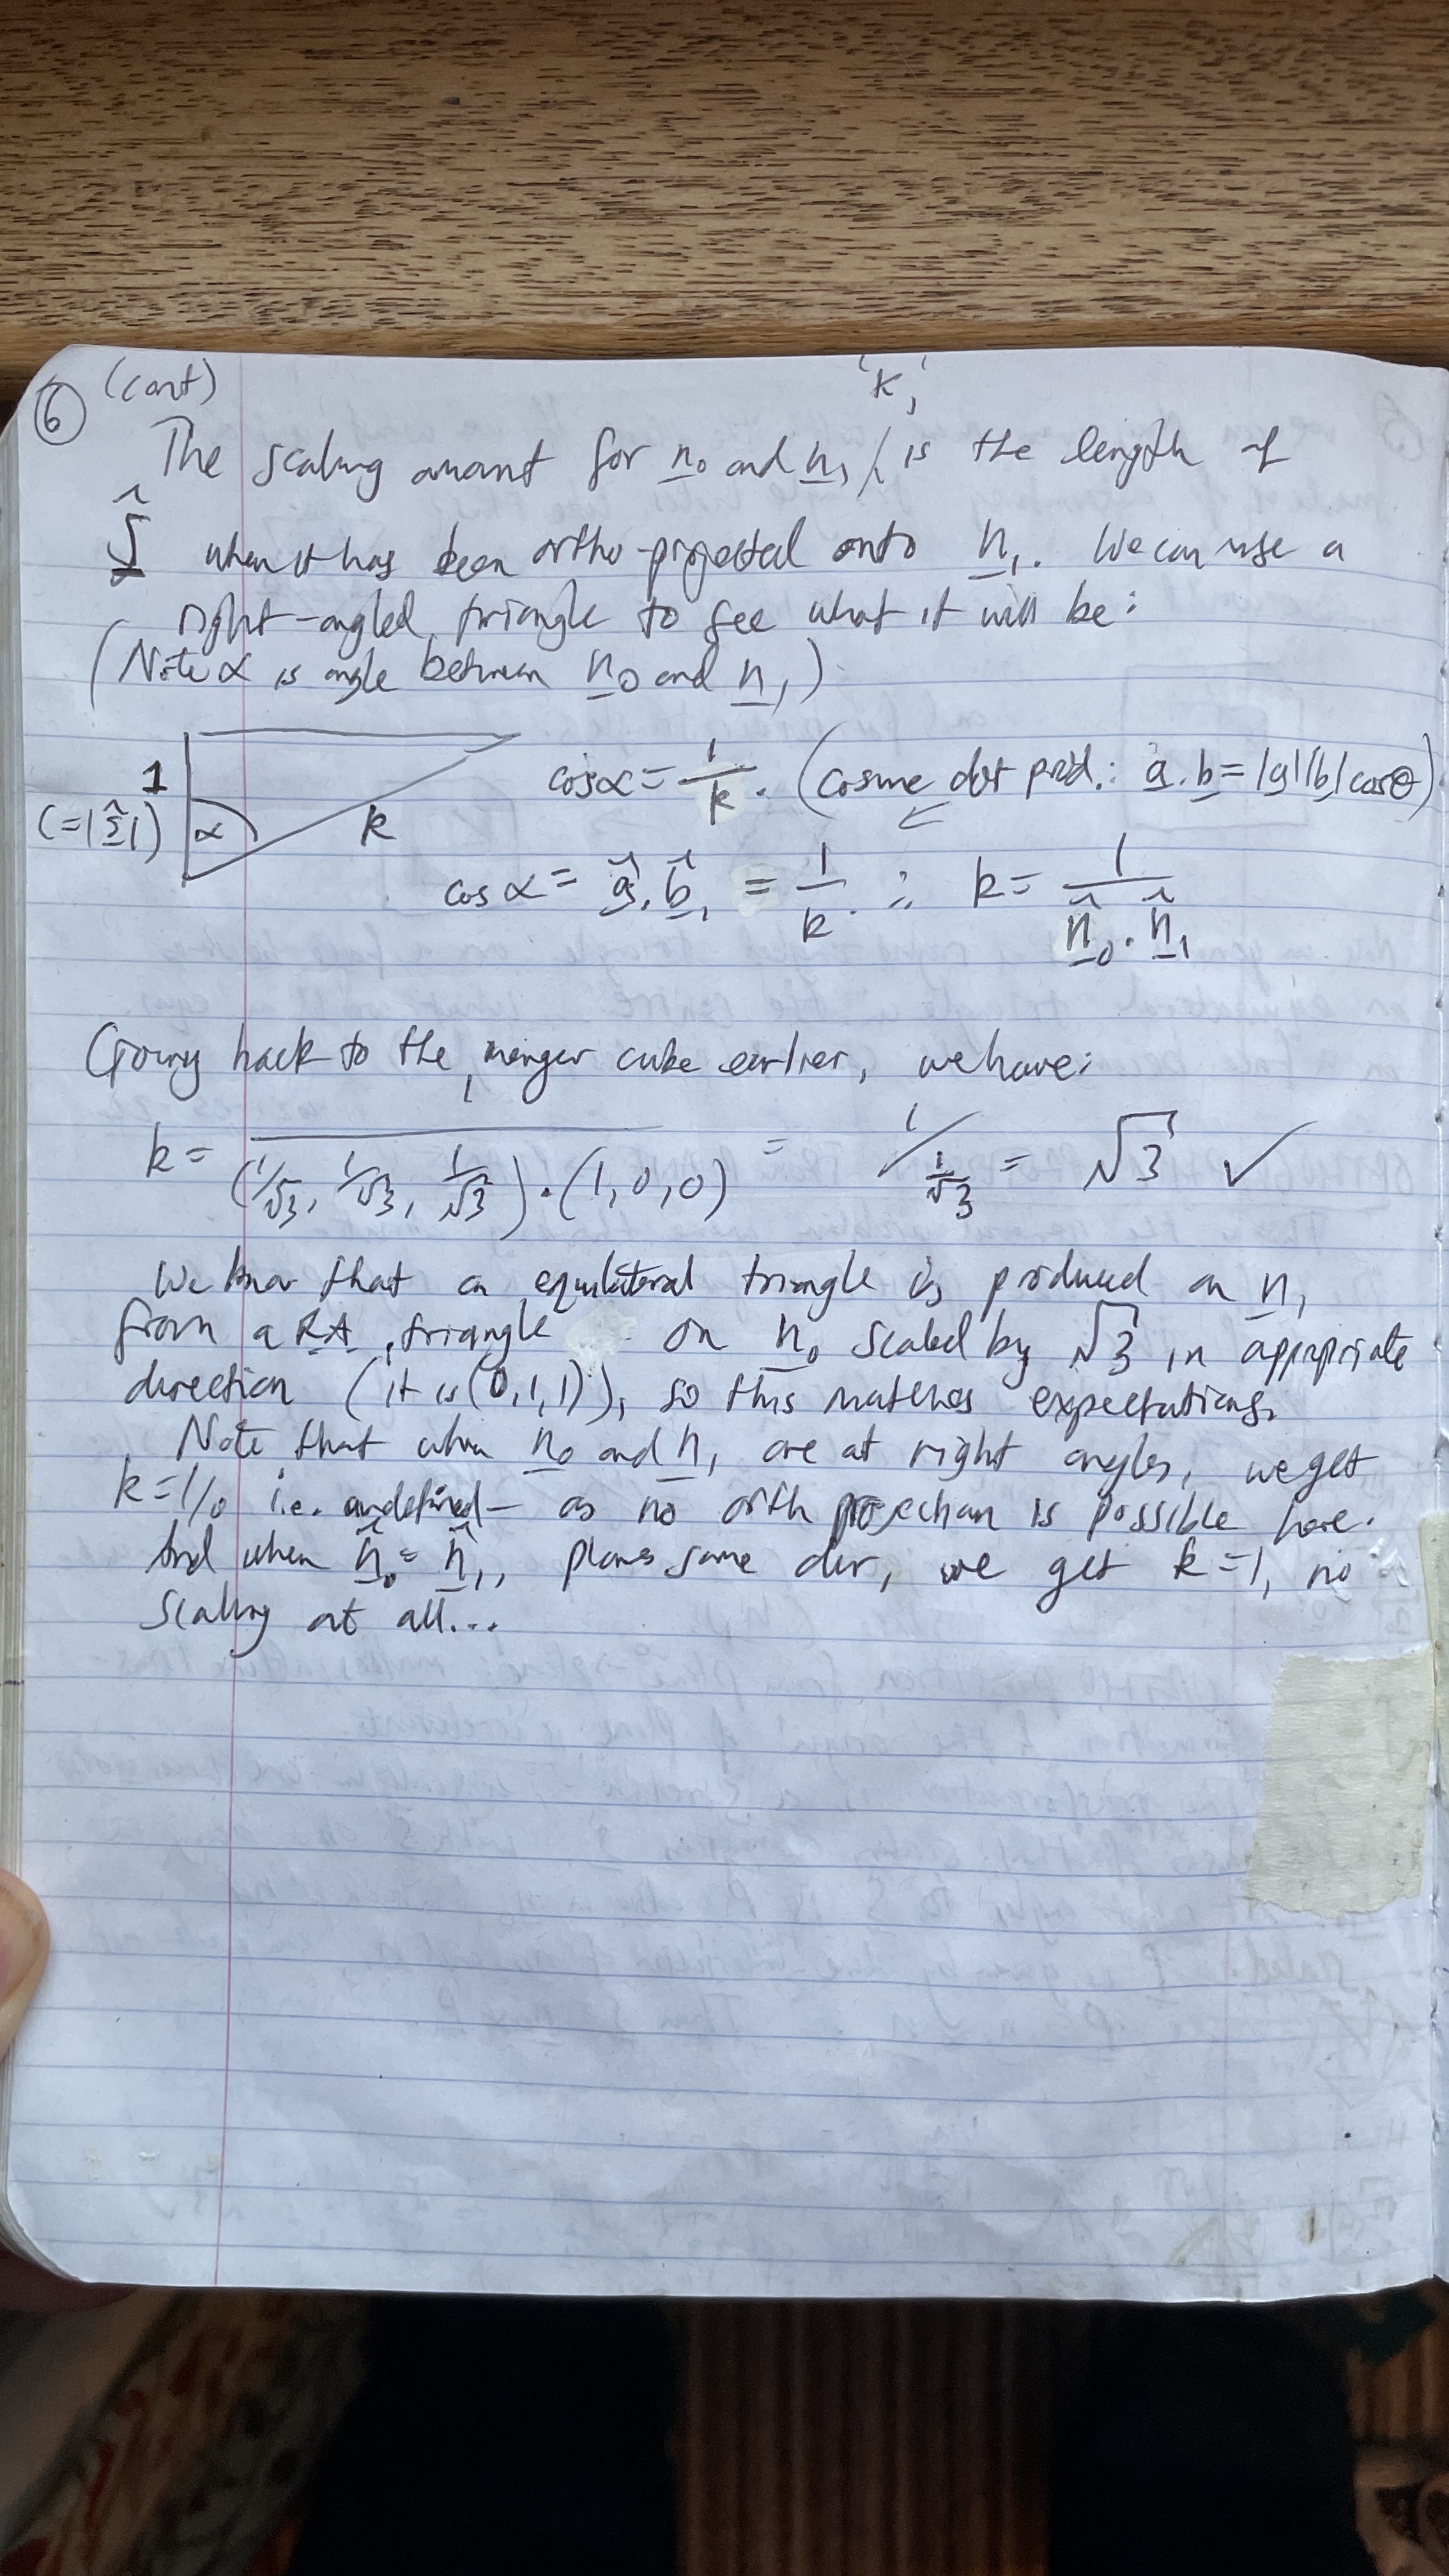 ⑥ (cont)
'k',
The scaling amount for n₀ and n₁ / is the length of
Ŝ when it has been ortho-projected onto n₁. We can use a
right-angled triangle to see what it will be:
(Note α is angle between n₀ and n₁)
1
(=|Ŝ|) α k
cosα = 1/k. (cosine dot prod.: a.b = |a||b|cosθ)
cos α = â.b̂, = 1/k. ∴ k = 1/(n̂₀.n̂₁)
Going back to the menger cube earlier, we have:
k = 1/((1/√3, 1/√3, 1/√3).(1,0,0)) = 1/(1/√3) = √3 ✓
We know that an equilateral triangle is produced on n₁
from a RA triangle on n₀ scaled by √3 in appropriate
direction (it is (0,1,1)), so this matches expectations.
Note that when n₀ and n₁ are at right angles, we get
k=1/0 i.e. undefined – as no orth projection is possible here.
And when n̂₀ = n̂₁, planes same dir, we get k=1, no
scaling at all...